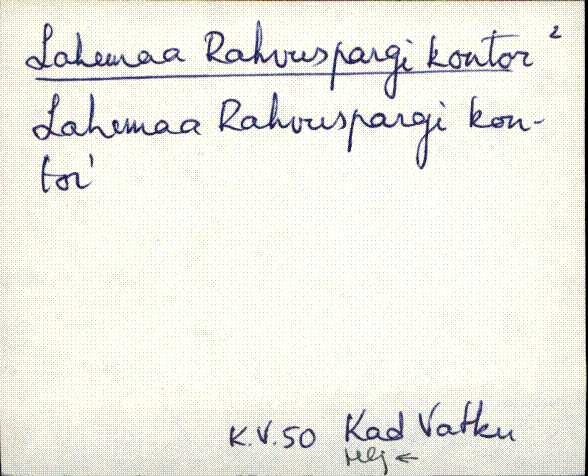 Lahemaa Rahvuspargi kontor ²
Lahemaa Rahvuspargi kon-
tor'
K.V.50 Kad Vatku
←